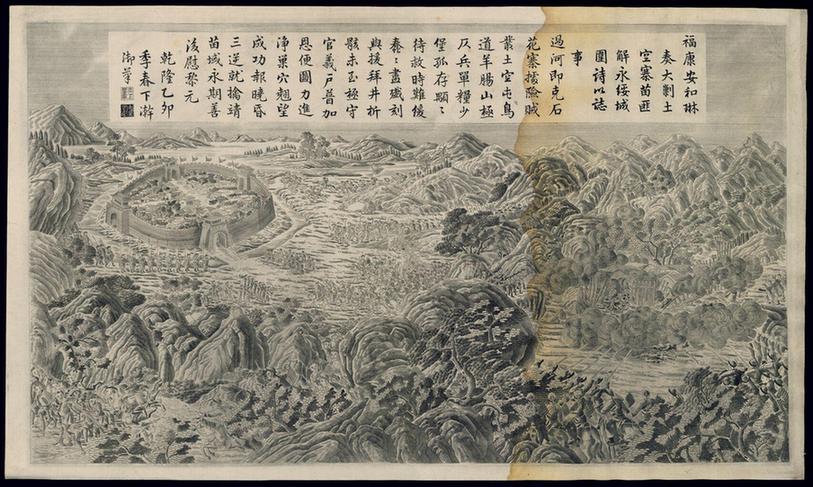 福康安和琳
奏大剿土
空寨苗匪
解永綏城
圍詩以誌
事
過河即克石
花寨擣險賊
叢土空屯鳥
道羊腸山極
仄兵單糧少
堡孤存顒〻
待救時難緩
蠢〻盡殲刻
與援拜井折
骸未至極守
官義戶普加
恩便圖力進
淨巢穴翹望
成功報曉昏
三逆就擒靖
苗域永期善
後慰黎元
乾隆乙卯
季春下澣
御筆